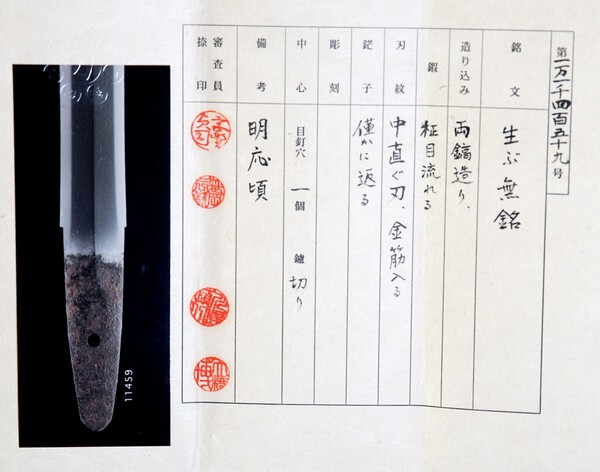 第一万一千四百五十九号
銘文 生ぶ無銘
造り込み 両鎬造り、
鍜 柾目流れる
刃紋 中直ぐ刃、金筋入る
鋩子 僅かに返る
彫刻
中心 目釘穴 一個 鑢 切り
備考 明応頃
審査員捺印
11459